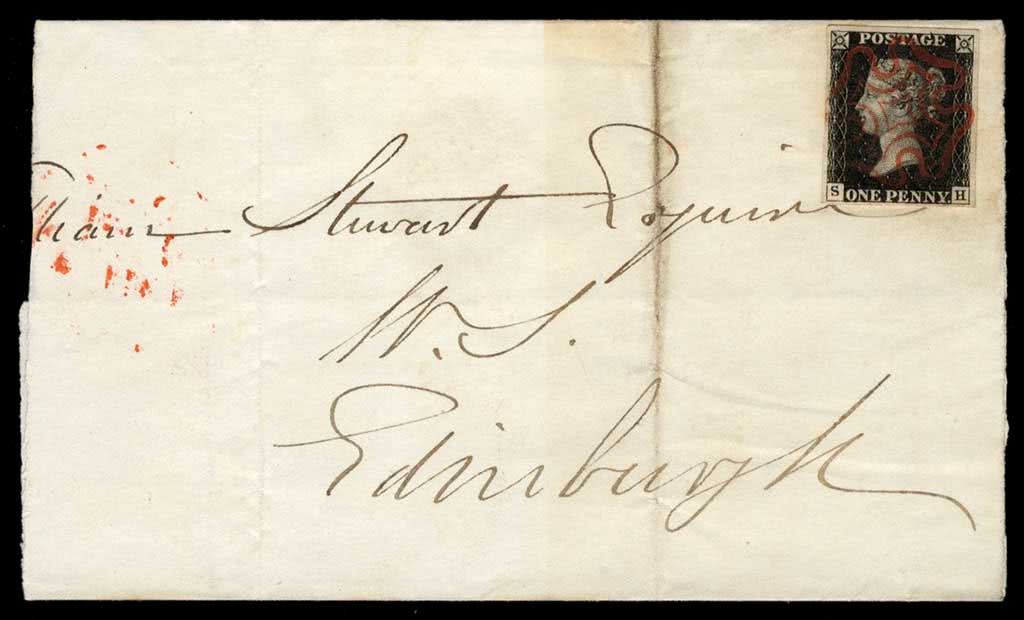 POSTAGE
S ONE PENNY. H
lliam Stewart Esquire
W. S.
Edinburgh